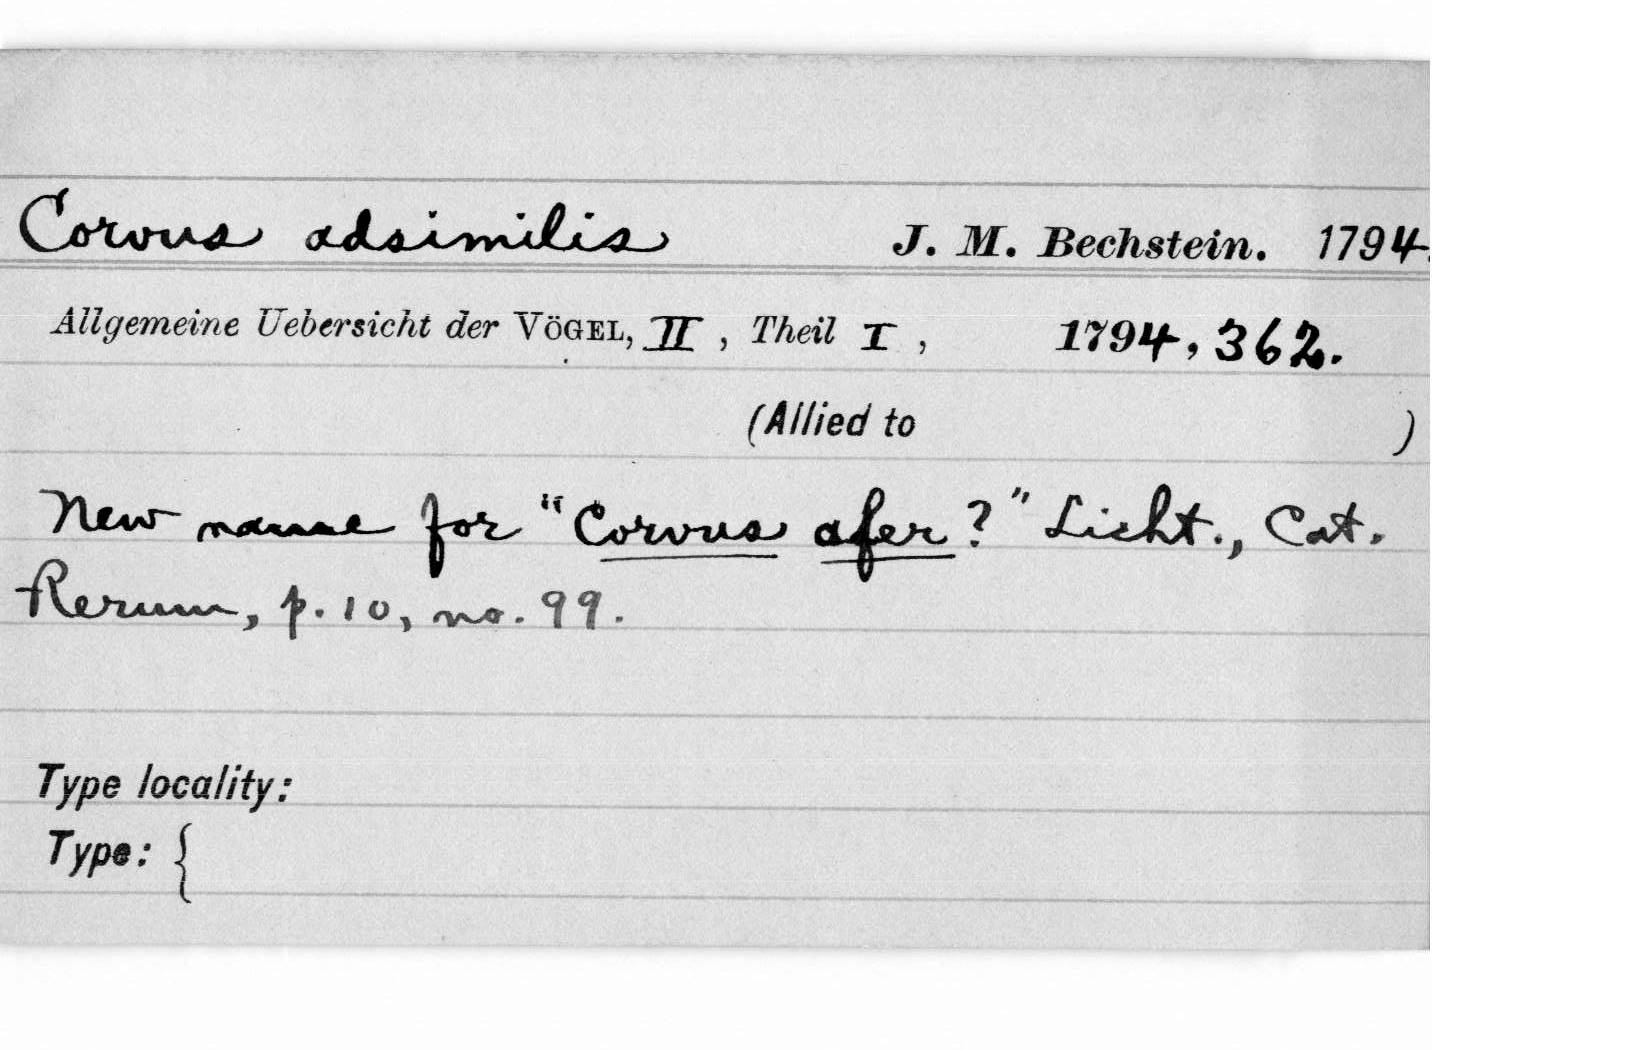 Corvus adsimilis J. M. Bechstein. 1794.
Allgemeine Uebersicht der VÖGEL, II, Theil I, 1794, 362.
(Allied to )
New name for "Corvus afer?" Licht., Cat.
Rerum, p. 10, no. 99.
Type locality:
Type: {